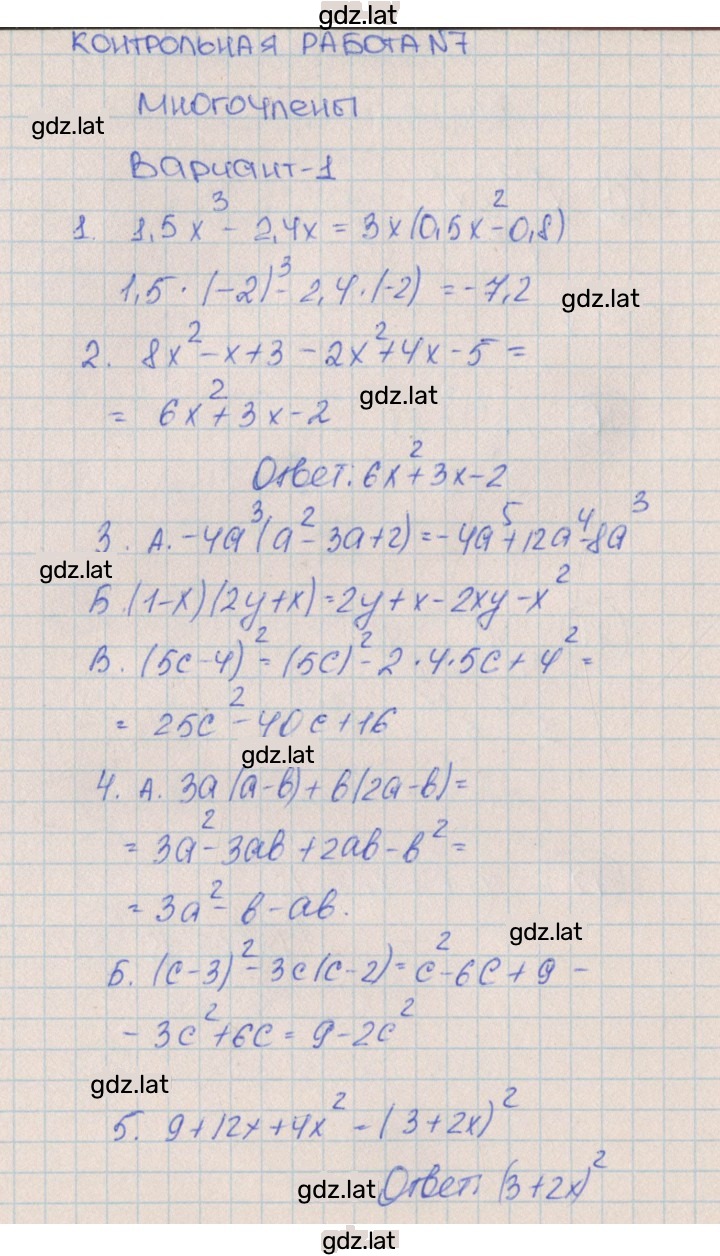 gdz.lat
КОНТРОЛЬНАЯ РАБОТА N7
Многочлены
gdz.lat
Вариант-1
1. 1,5x³ - 2,4x = 3x(0,5x² - 0,8)
1,5 · (-2)³ - 2,4 · (-2) = -7,2
gdz.lat
2. 8x² - x + 3 - 2x² + 4x - 5 =
= 6x² + 3x - 2
gdz.lat
Ответ: 6x² + 3x - 2
3. А. -4a³(a² - 3a + 2) = -4a⁵ + 12a⁴ - 8a³
gdz.lat
Б. (1-x)(2y+x) = 2y + x - 2xy - x²
В. (5c-4)² = (5c)² - 2 · 4 · 5c + 4² =
= 25c² - 40c + 16
gdz.lat
4. А. 3a(a-b) + b(2a-b) =
= 3a² - 3ab + 2ab - b² =
= 3a² - b - ab.
gdz.lat
Б. (c-3)² - 3c(c-2) = c² - 6c + 9 -
- 3c² + 6c = 9 - 2c²
gdz.lat
5. 9 + 12x + 4x² - (3+2x)²
gdz.lat Ответ: (3+2x)²
gdz.lat